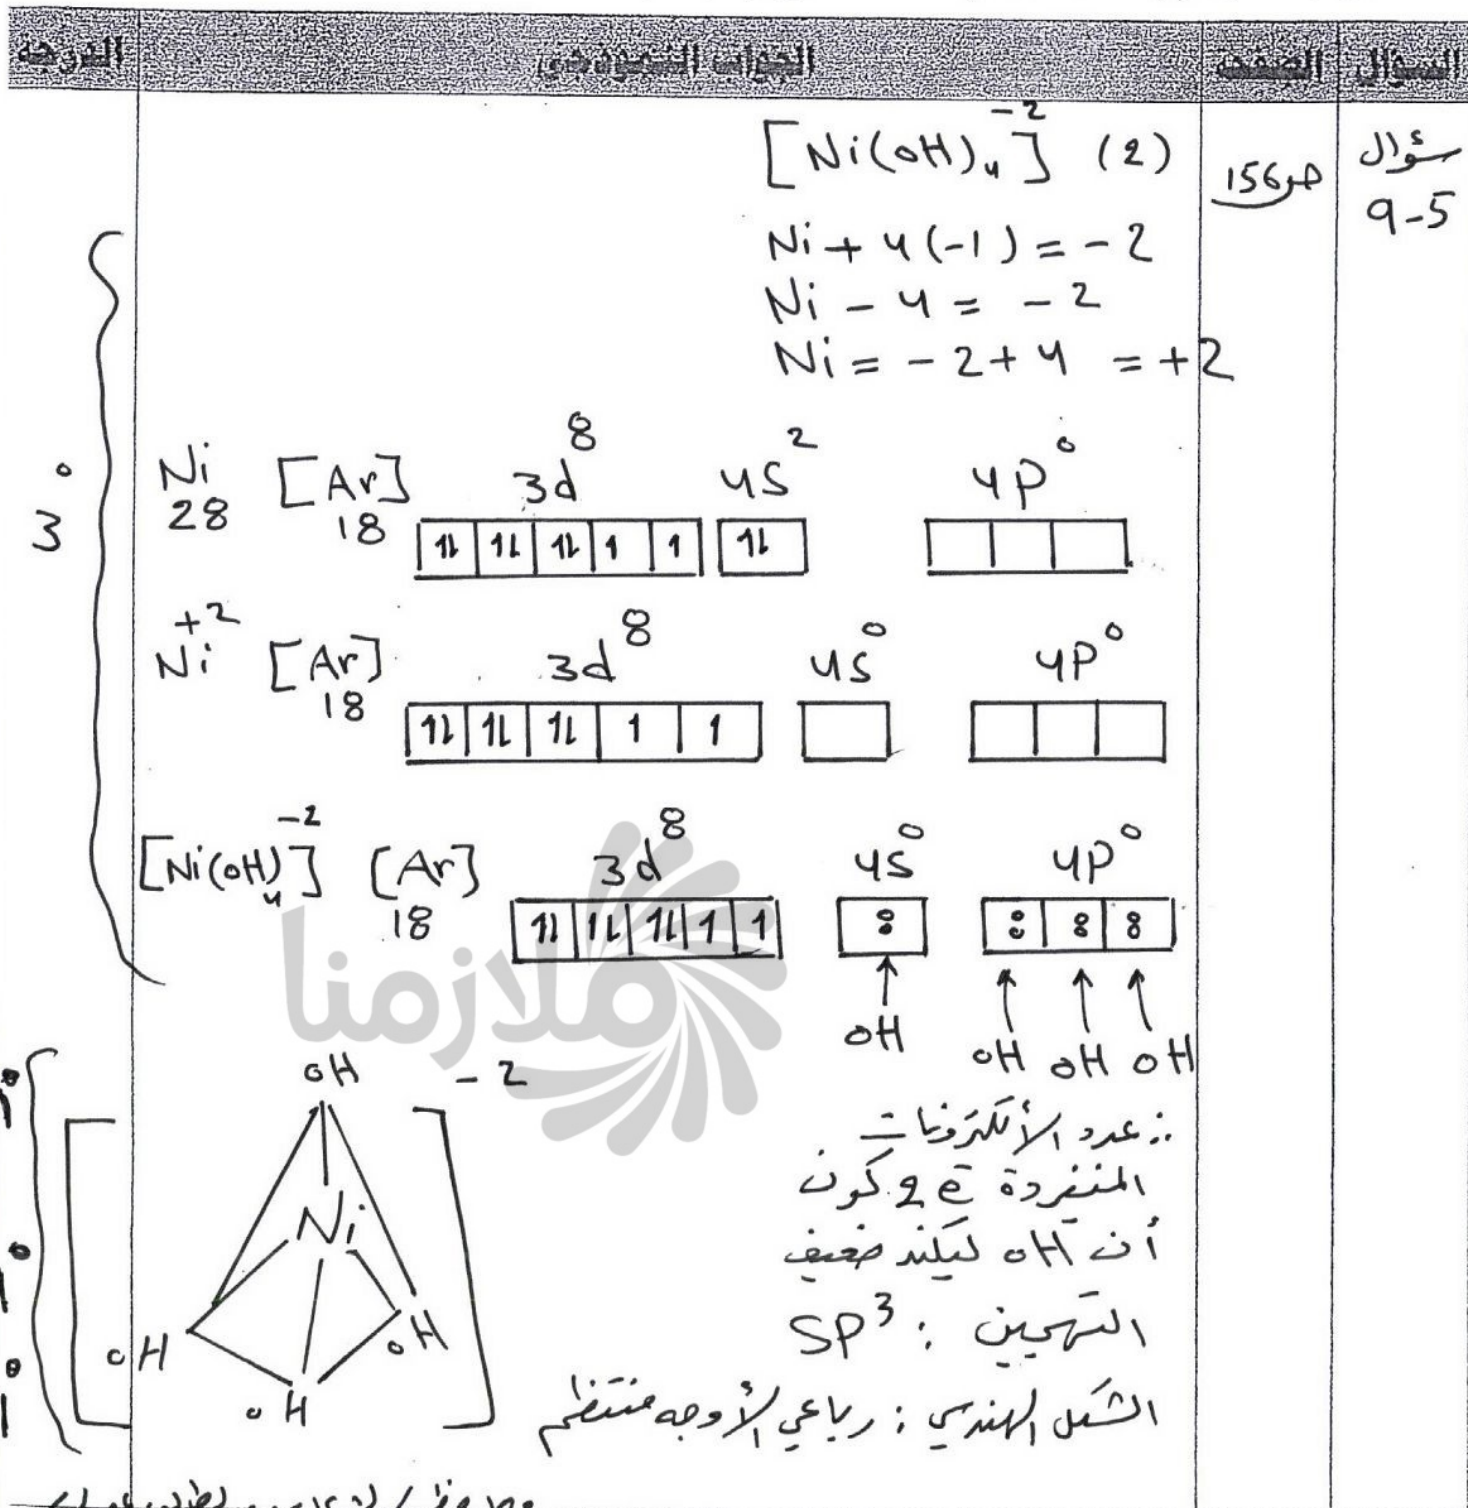 السؤال الصفحة الجواب النموذجي الدرجه
سؤال 9-5 ص156 (2) [Ni(OH)₄]⁻²
Ni + 4(-1) = -2
Ni - 4 = -2
Ni = -2 + 4 = +2
Ni 28 [Ar] 18 3d⁸ 4s² 4p⁰
3°
1L 1L 1L 1 1 1L
Ni⁺² [Ar] 18 3d⁸ 4s⁰ 4p⁰
1L 1L 1L 1 1
[Ni(OH)₄]⁻² [Ar] 18 3d⁸ 4s⁰ 4p⁰
1L 1L 1L 1 1
OH OH OH OH
ملازمنا
OH -2
∴ عدد الألكترونات
المنفردة 2e كون
Ni
أن OH ليكند ضعيف
التهجين : SP³
OH OH
OH
الشكل الهندسي : رباعي الأوجه منتظم